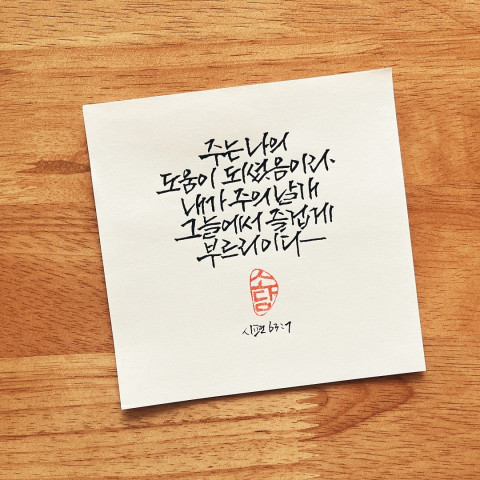 주는 나의
도움이 되셨음이라.
내가 주의 날개
그늘에서 즐겁게
부르리이다
소향
시편 63:7